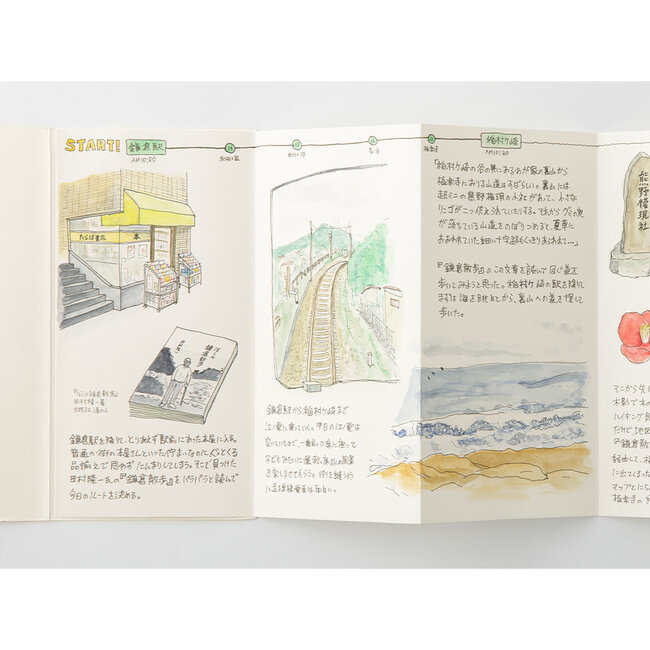 START!
鎌倉駅
AM10:00
和田塚
長谷
極楽寺
稲村ヶ崎
AM10:30
たらば書房
本
ぼくの
鎌倉散歩
田村隆一
『ぼくの鎌倉散歩』
田村隆一著
鎌倉駅を降りて、とりあえず駅前にあった本屋に入る。
普通の街の本屋さんといった佇まいなのに、ぐっとくる
品揃えで思わずたんまりしてしまう。そこで見つけた
田村隆一氏の『鎌倉散歩』をパラパラと読んで
今日のルートを決める。
鎌倉駅から稲村ヶ崎まで
江ノ電に乗っていく。平日の江ノ電は
空いていたので、一番前の席に座って
子どもみたいに運転席からの風景
を楽しませてもらう。街を縫うように
走る単線電車は面白い。
「稲村ヶ崎の谷の奥にあるわが家の裏山から
極楽寺に出る山道はすばらしい。裏山には
超ミニの熊野権現の小社があって、小さな
リンゴが二つ供えられていたりする。それからグミの実
が落ちている山道をのぼりつめると、夏草に
おおわれていた細い十字路もくっきりあらわれて…」
『鎌倉散歩』のこの文章を読んで同じ道を
歩いてみようと思った。稲村ヶ崎の駅を降りて
まずは海を眺めてから、裏山への道を探して
歩いた。
熊野権現社
そこから先は
木影で
ハイキング
だけど地図
『鎌倉散
経由して、
に出てしまった
マップとにら
極楽寺の